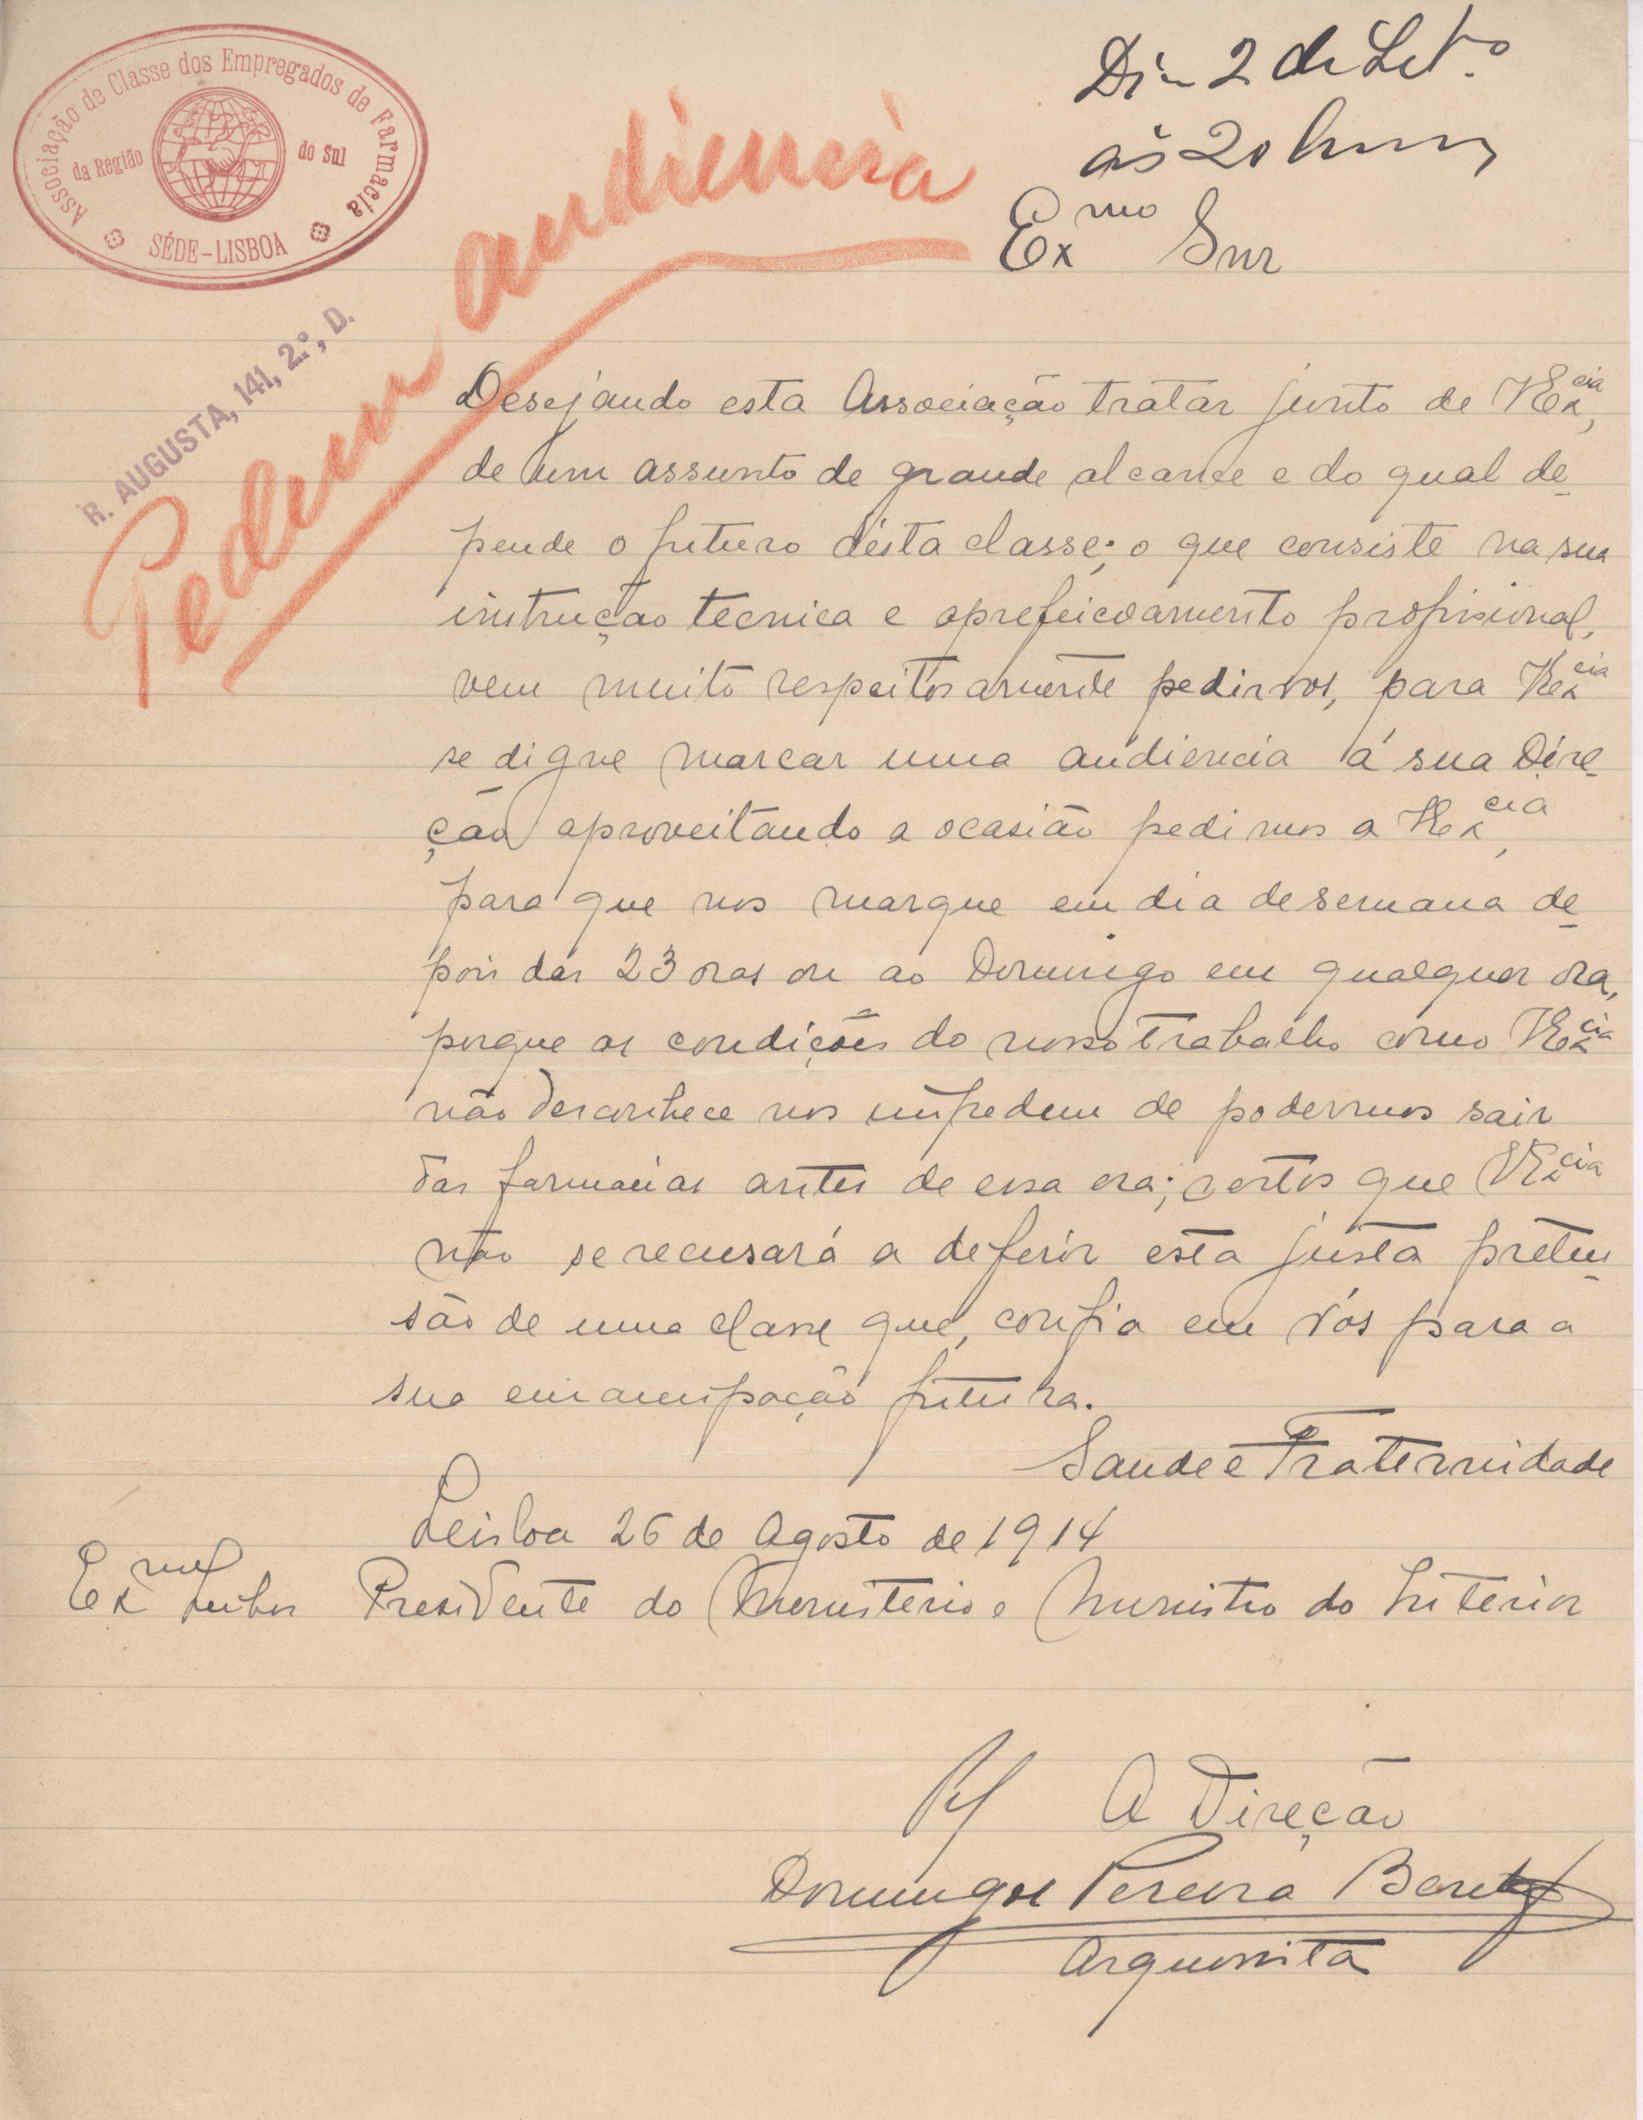 Associação de Classe dos Empregados de Farmacia
da Região do Sul
SÉDE-LISBOA
R. AUGUSTA, 141, 2.º, D.
Pedem audiencia
Dia 2 de Set.o
ás 20 horas
Exmo Snr
Desejando esta Associação tratar junto de VExcia,
de um assunto de grande alcance e do qual de-
pende o futuro désta classe; o que consiste na sua
instrução tecnica e aprefeicoamento profisional,
vem muito respeitosamente pedirvos, para VExcia
se digne marcar uma audiencia á sua Dire-
ção aproveitando a ocasião pedimos a VExcia,
para que nos marque em dia de semana de-
pois das 23 oras ou ao Domingo em qualquer ora,
porque as condições do nosso trabalho como VExcia
não desconhece nos impedem de podermos sair
das farmacias antes de essa ora; certos que VExcia
não se recusará a deferir esta justa preten-
são de uma classe que, confia em vós para a
sua emancipação futura.
Saude e Fraternidade
Leisboa 26 de Agosto de 1914
Exmo Senhor Presidente do Menisterio e Menistro do Interior
A Direção
Domingos Pereira
Arquivista